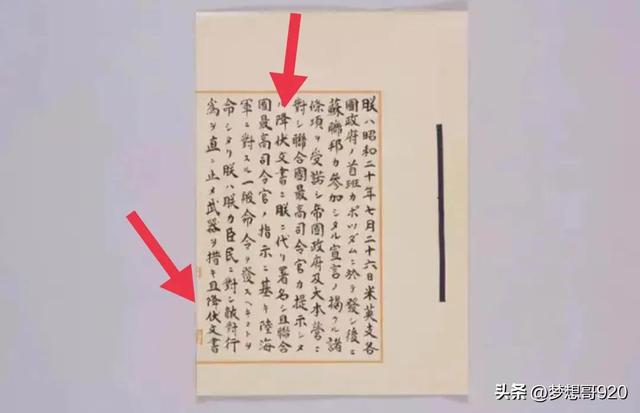 朕ハ昭和二十年七月二十六日米英支各
國政府ノ首班カポツダムニ於テ發シ後ニ
蘇聯邦カ參加シタル宣言ノ掲クル諸
條項ヲ受諾シ帝國政府及大本營ニ
對シ聯合國最高司令官カ提示シタ
ル降伏文書ニ朕ニ代リ署名シ且聯合
國最高司令官ノ指示ニ基キ陸海
軍ニ對スル一般命令ヲ發スヘキコトヲ
命シタリ朕ハ朕カ臣民ニ對シ敵對行
爲ヲ直ニ止メ武器ヲ措キ且降伏文書
头条 @梦想哥920